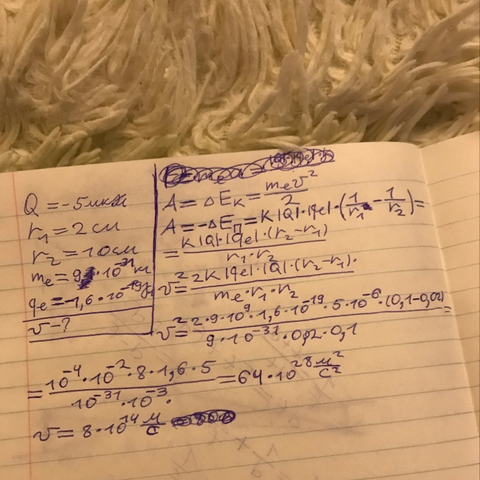 Q = -5 мкКл
r₁ = 2 см
r₂ = 10 см
mₑ = 9 · 10⁻³¹ кг
qₑ = -1,6 · 10⁻¹⁹ Кл
v - ?
A = ΔEₖ = mₑv²/2
A = -ΔEп = K|Q|·|qe|·(1/r₁ - 1/r₂) =
= K|Q|·|qe|·(r₂-r₁)/r₁·r₂
v² = 2K|qe|·|Q|·(r₂-r₁)·/mₑ·r₁·r₂
v² = 2·9·10⁹·1,6·10⁻¹⁹·5·10⁻⁶·(0,1-0,02)/9·10⁻³¹·0,02·0,1 =
= 10⁻⁴·10⁻²·8·1,6·5/10⁻³¹·10⁻³· = 64·10²⁸ м²/с²
v = 8·10¹⁴ м/с